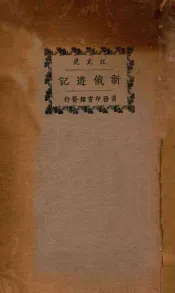 江亢虎
新俄遊記
商務印書館發行